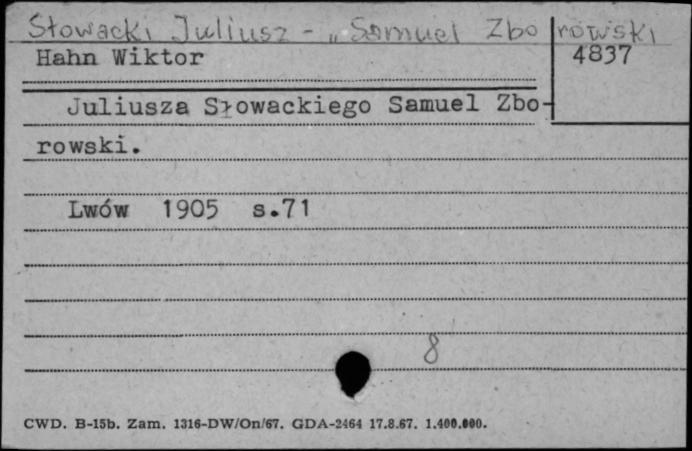 Słowacki Juliusz - „Samuel Zborowski
Hahn Wiktor
4837
Juliusza Słowackiego Samuel Zbo-
rowski.
Lwów 1905 s.71
8
CWD. B-15b. Zam. 1316-DW/On/67. GDA-2464 17.8.67. 1.400.000.